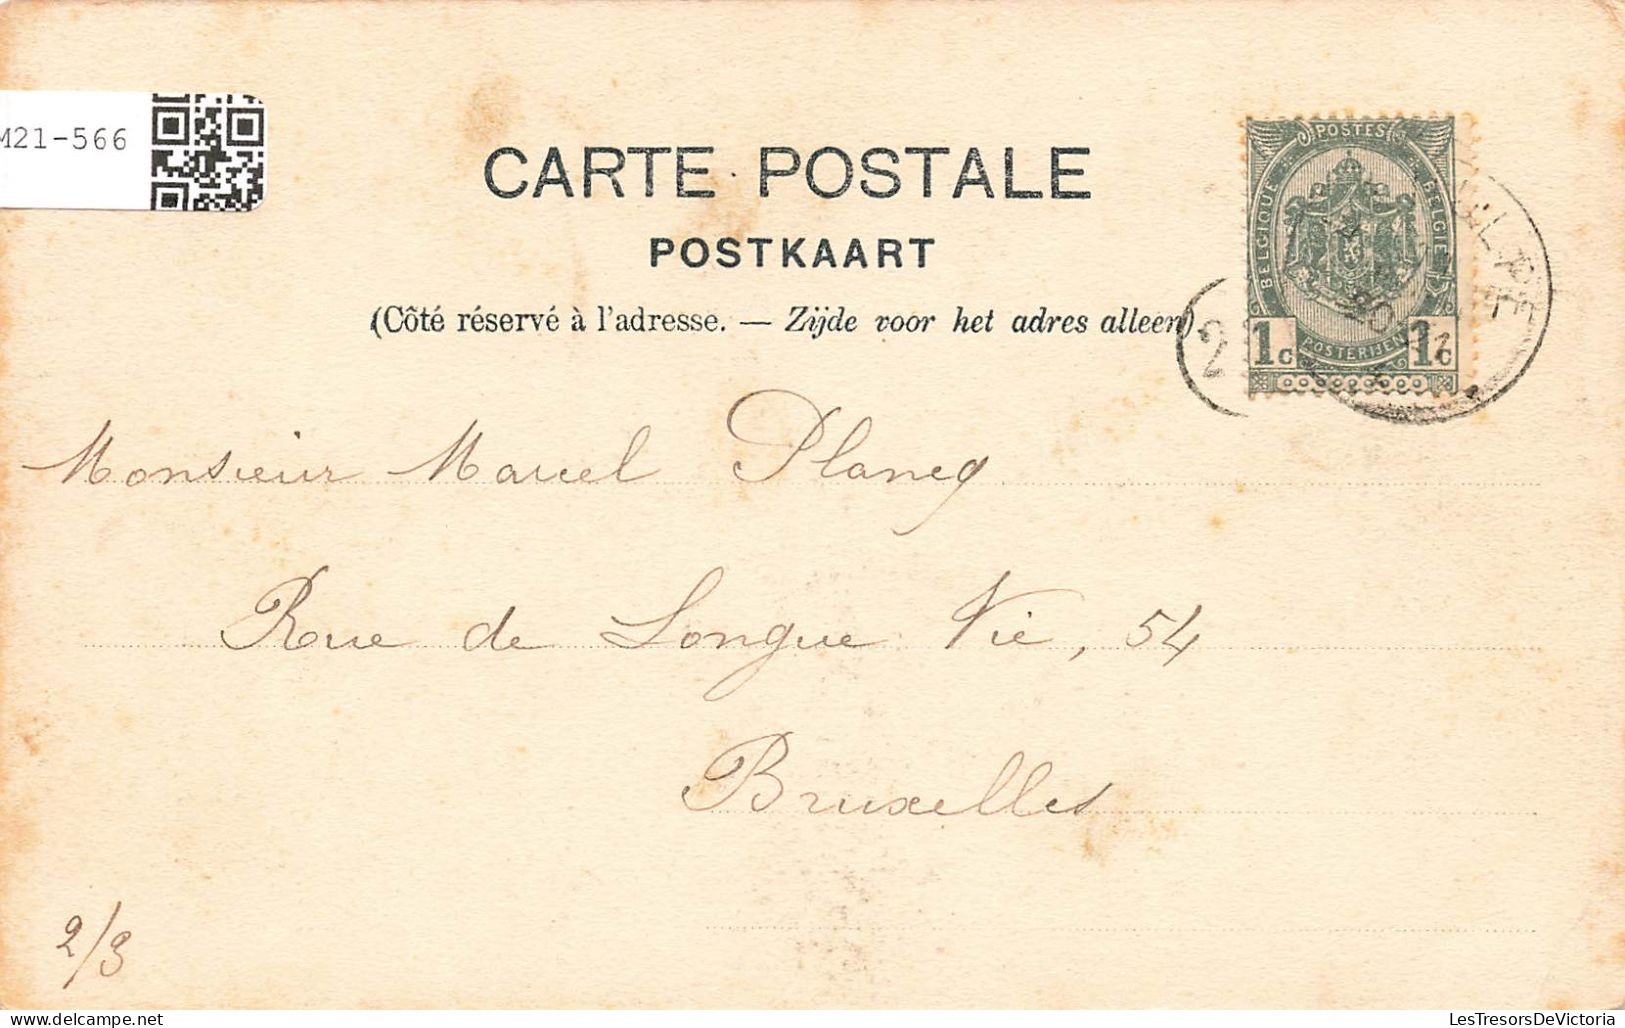 M21-566
CARTE POSTALE
POSTKAART
(Côté réservé à l'adresse. — Zijde voor het adres alleen)
POSTES
BELGIQUE
BELGIE
POSTERIJEN
1c 1c
2
Monsieur Marcel Plancq
Rue de Longue Vie, 54
Bruxelles
2/3
LesTresorsDeVictoria